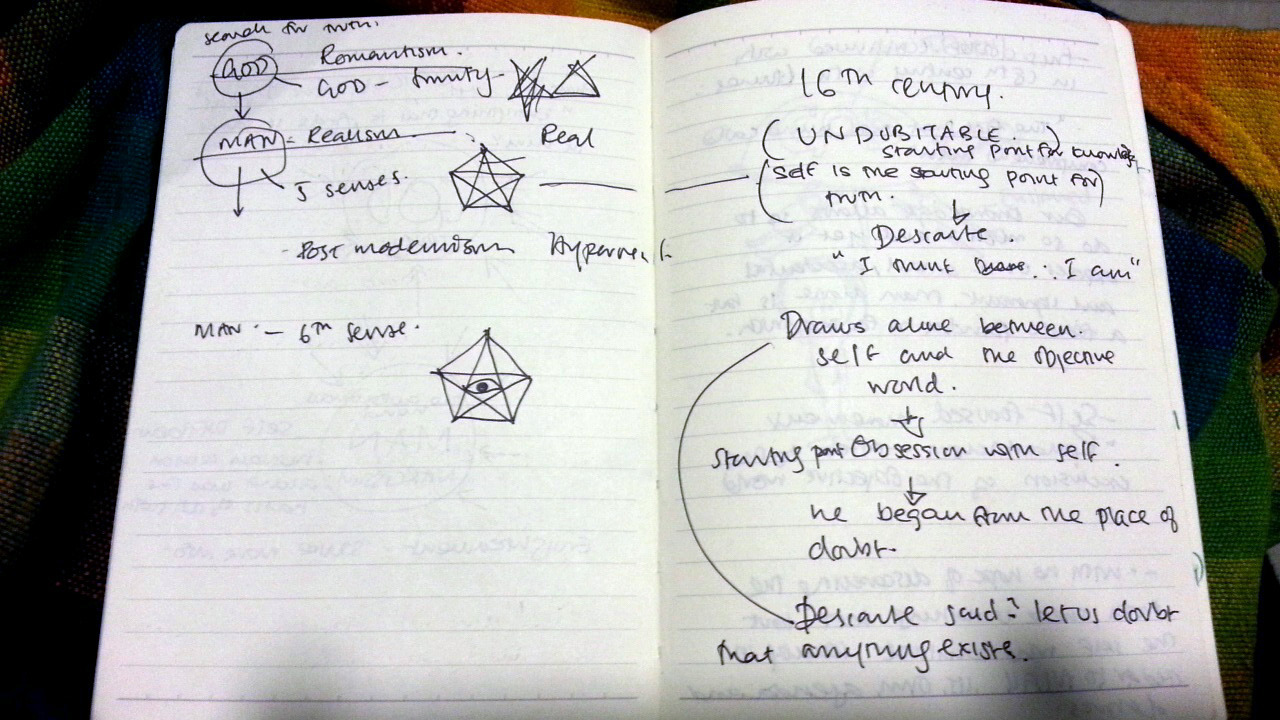 search for truth.
GOD
Romantism.
GOD - trinity -
MAN - Realism
Real
5 senses.
- Post modernism
MAN - 6th sense.
16th century.
(UNDUBITABLE.)
starting point for
(self is the starting point for)
truth.
Descarte.
"I think ∴ I am"
Draws a line between
self and the objective
world.
starting point Obsession with self.
he began from the place of
doubt.
Descarte said: let us doubt
that anything exists.